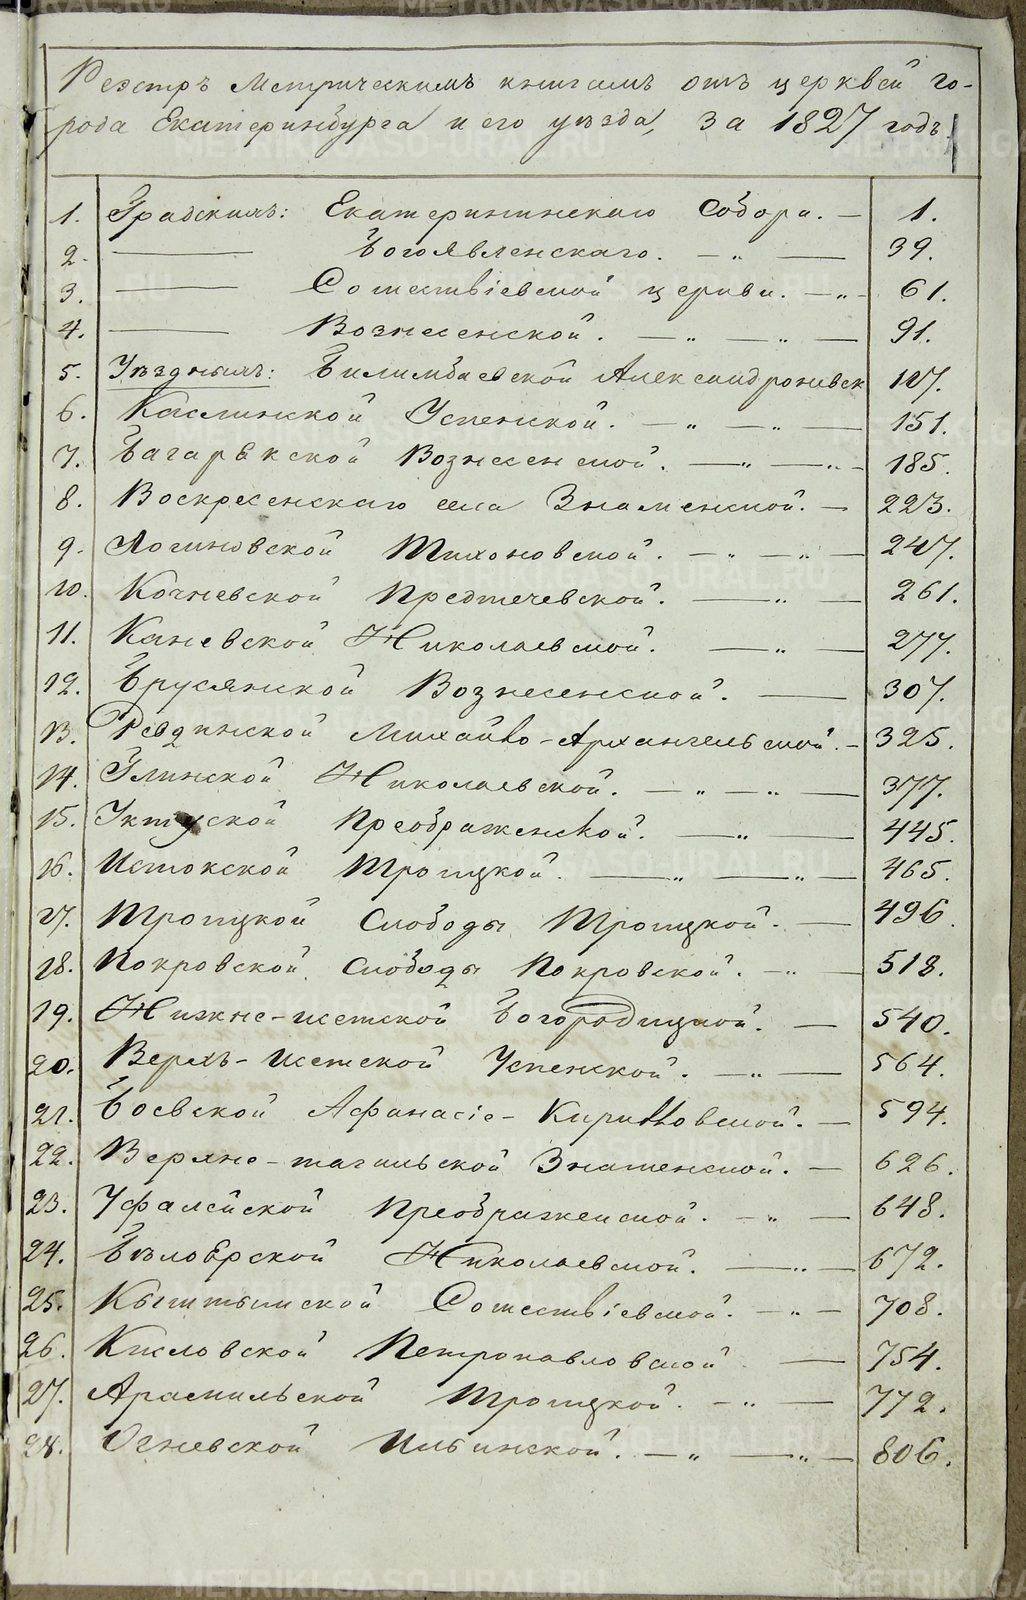 Реэстръ Метрическимъ книгамъ отъ церквей го-
рода Екатеринбурга и его уѣзда, за 1827 годъ.
1. Градскимъ: Екатерининскаго Собора. — 1.
2. — Богоявленскаго. — „ — 39.
3. — Сошествіевской церкви. — „ — 61.
4. — Вознесенской. — „ — „ — 91.
5. Уѣзднымъ: Билимбаевской Александроневск 117.
6. Каслинской Успенской. — „ — „ — 151.
7. Багарякской Вознесенской. — „ — „ — 185.
8. Воскресенскаго села Знаменской. — 223.
9. Логиновской Тихоновской. — „ — „ — 247.
10. Кочневской Предтечевской. — „ — 261.
11. Каневской Николаевской. — „ — 277.
12. Брусянской Вознесенской. — 307.
13. Ревдинской Михайло-Архангельской. — 325.
14. Глинской Николаевской. — „ — „ — 377.
15. Уктусской Преображенской. — „ — 445.
16. Истокской Троицкой. — „ — „ — 465.
17. Троицкой Слободы Троицкой. — 496.
18. Покровской Слободы Покровской. — „ — 518.
19. Нижне-исетской Богородицкой. — 540.
20. Верхъ-Исетской Успенской. — „ — 564.
21. Боевской Афанасіе-Кирилловской. — 594.
22. Верхне-тагильской Знаменской. — 626.
23. Уфалейской Преображенской. — „ — 648.
24. Бѣлоярской Николаевской. — „ — 672.
25. Кыштымской Сошествіевской. — „ — 708.
26. Кисловской Петропавловской — 754.
27. Арамильской Троицкой. — „ — 772.
28. Огневской Ильинской. — „ — „ — 806.
METRIKI.GASO-URAL.RU